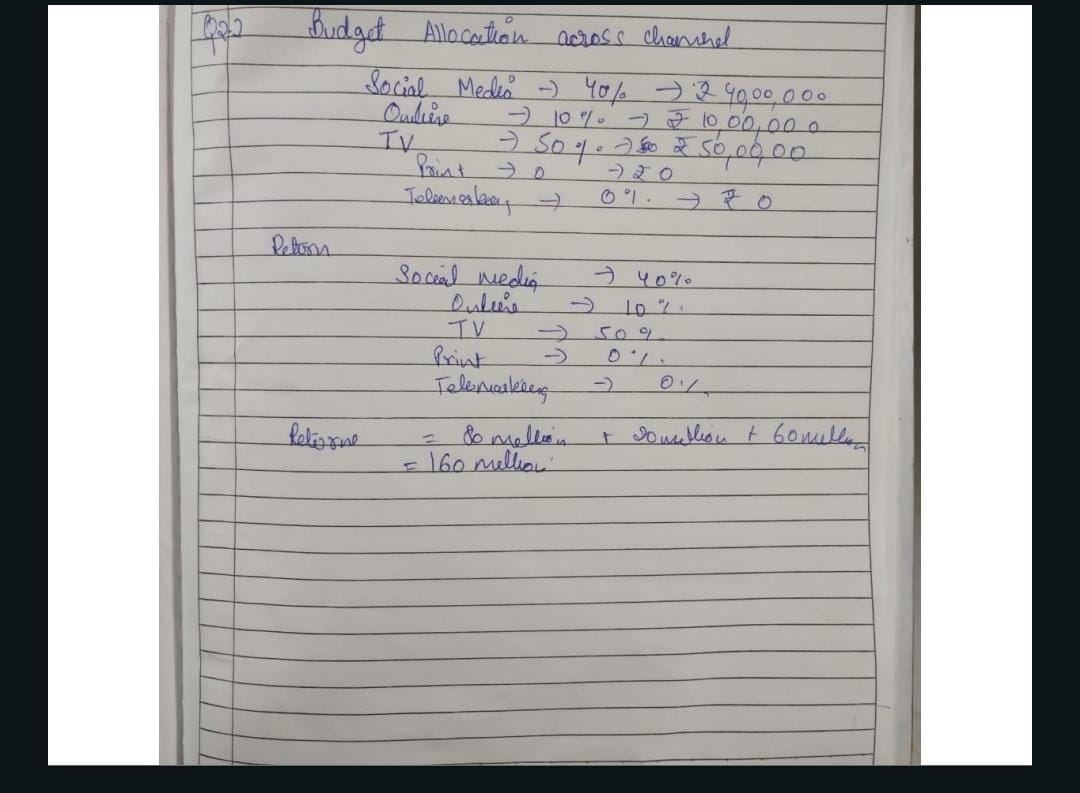 Q22 Budget Allocation across channel
Social Media → 40% → ₹ 40,00,000
Online → 10% → ₹ 10,00,000
TV → 50% → ₹ 50,00,00
Print → 0 → ₹ 0
Telemarketing → 0% → ₹ 0
Return
Social media → 40%
Online → 10%
TV → 50%
Print → 0%
Telemarketing → 0%
= 80 million + 20 million + 60 million
= 160 million